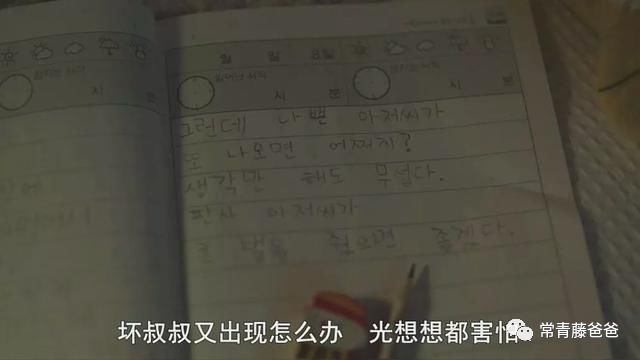 월 일 요일
일어난 시각
시 분
시 분
그런데 나쁜 아저씨가
또 나오면 어쩌지?
생각만 해도 무섭다.
판사 아저씨가
벌을 줬으면 좋겠다.
坏叔叔又出现怎么办 光想想都害怕
常青藤爸爸